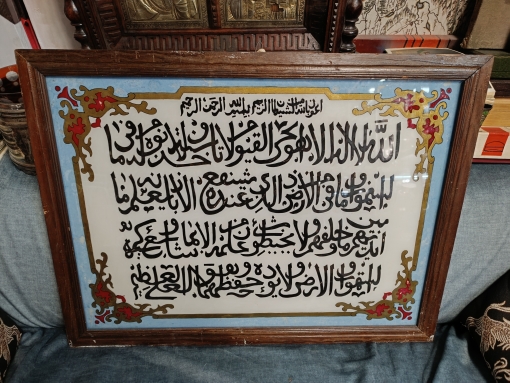 اعوذ بالله من الشيطان الرجيم بسم الله الرحمن الرحيم
الله لا اله الا هو الحي القيوم لا تاخذه سنة ولا نوم له ما في
السموات وما في الارض من ذا الذي يشفع عنده الا باذنه يعلم ما
بين ايديهم وما خلفهم ولا يحيطون بشيء من علمه الا بما شاء وسع كرسيه
السموات والارض ولا يوده حفظهما وهو العلي العظيم